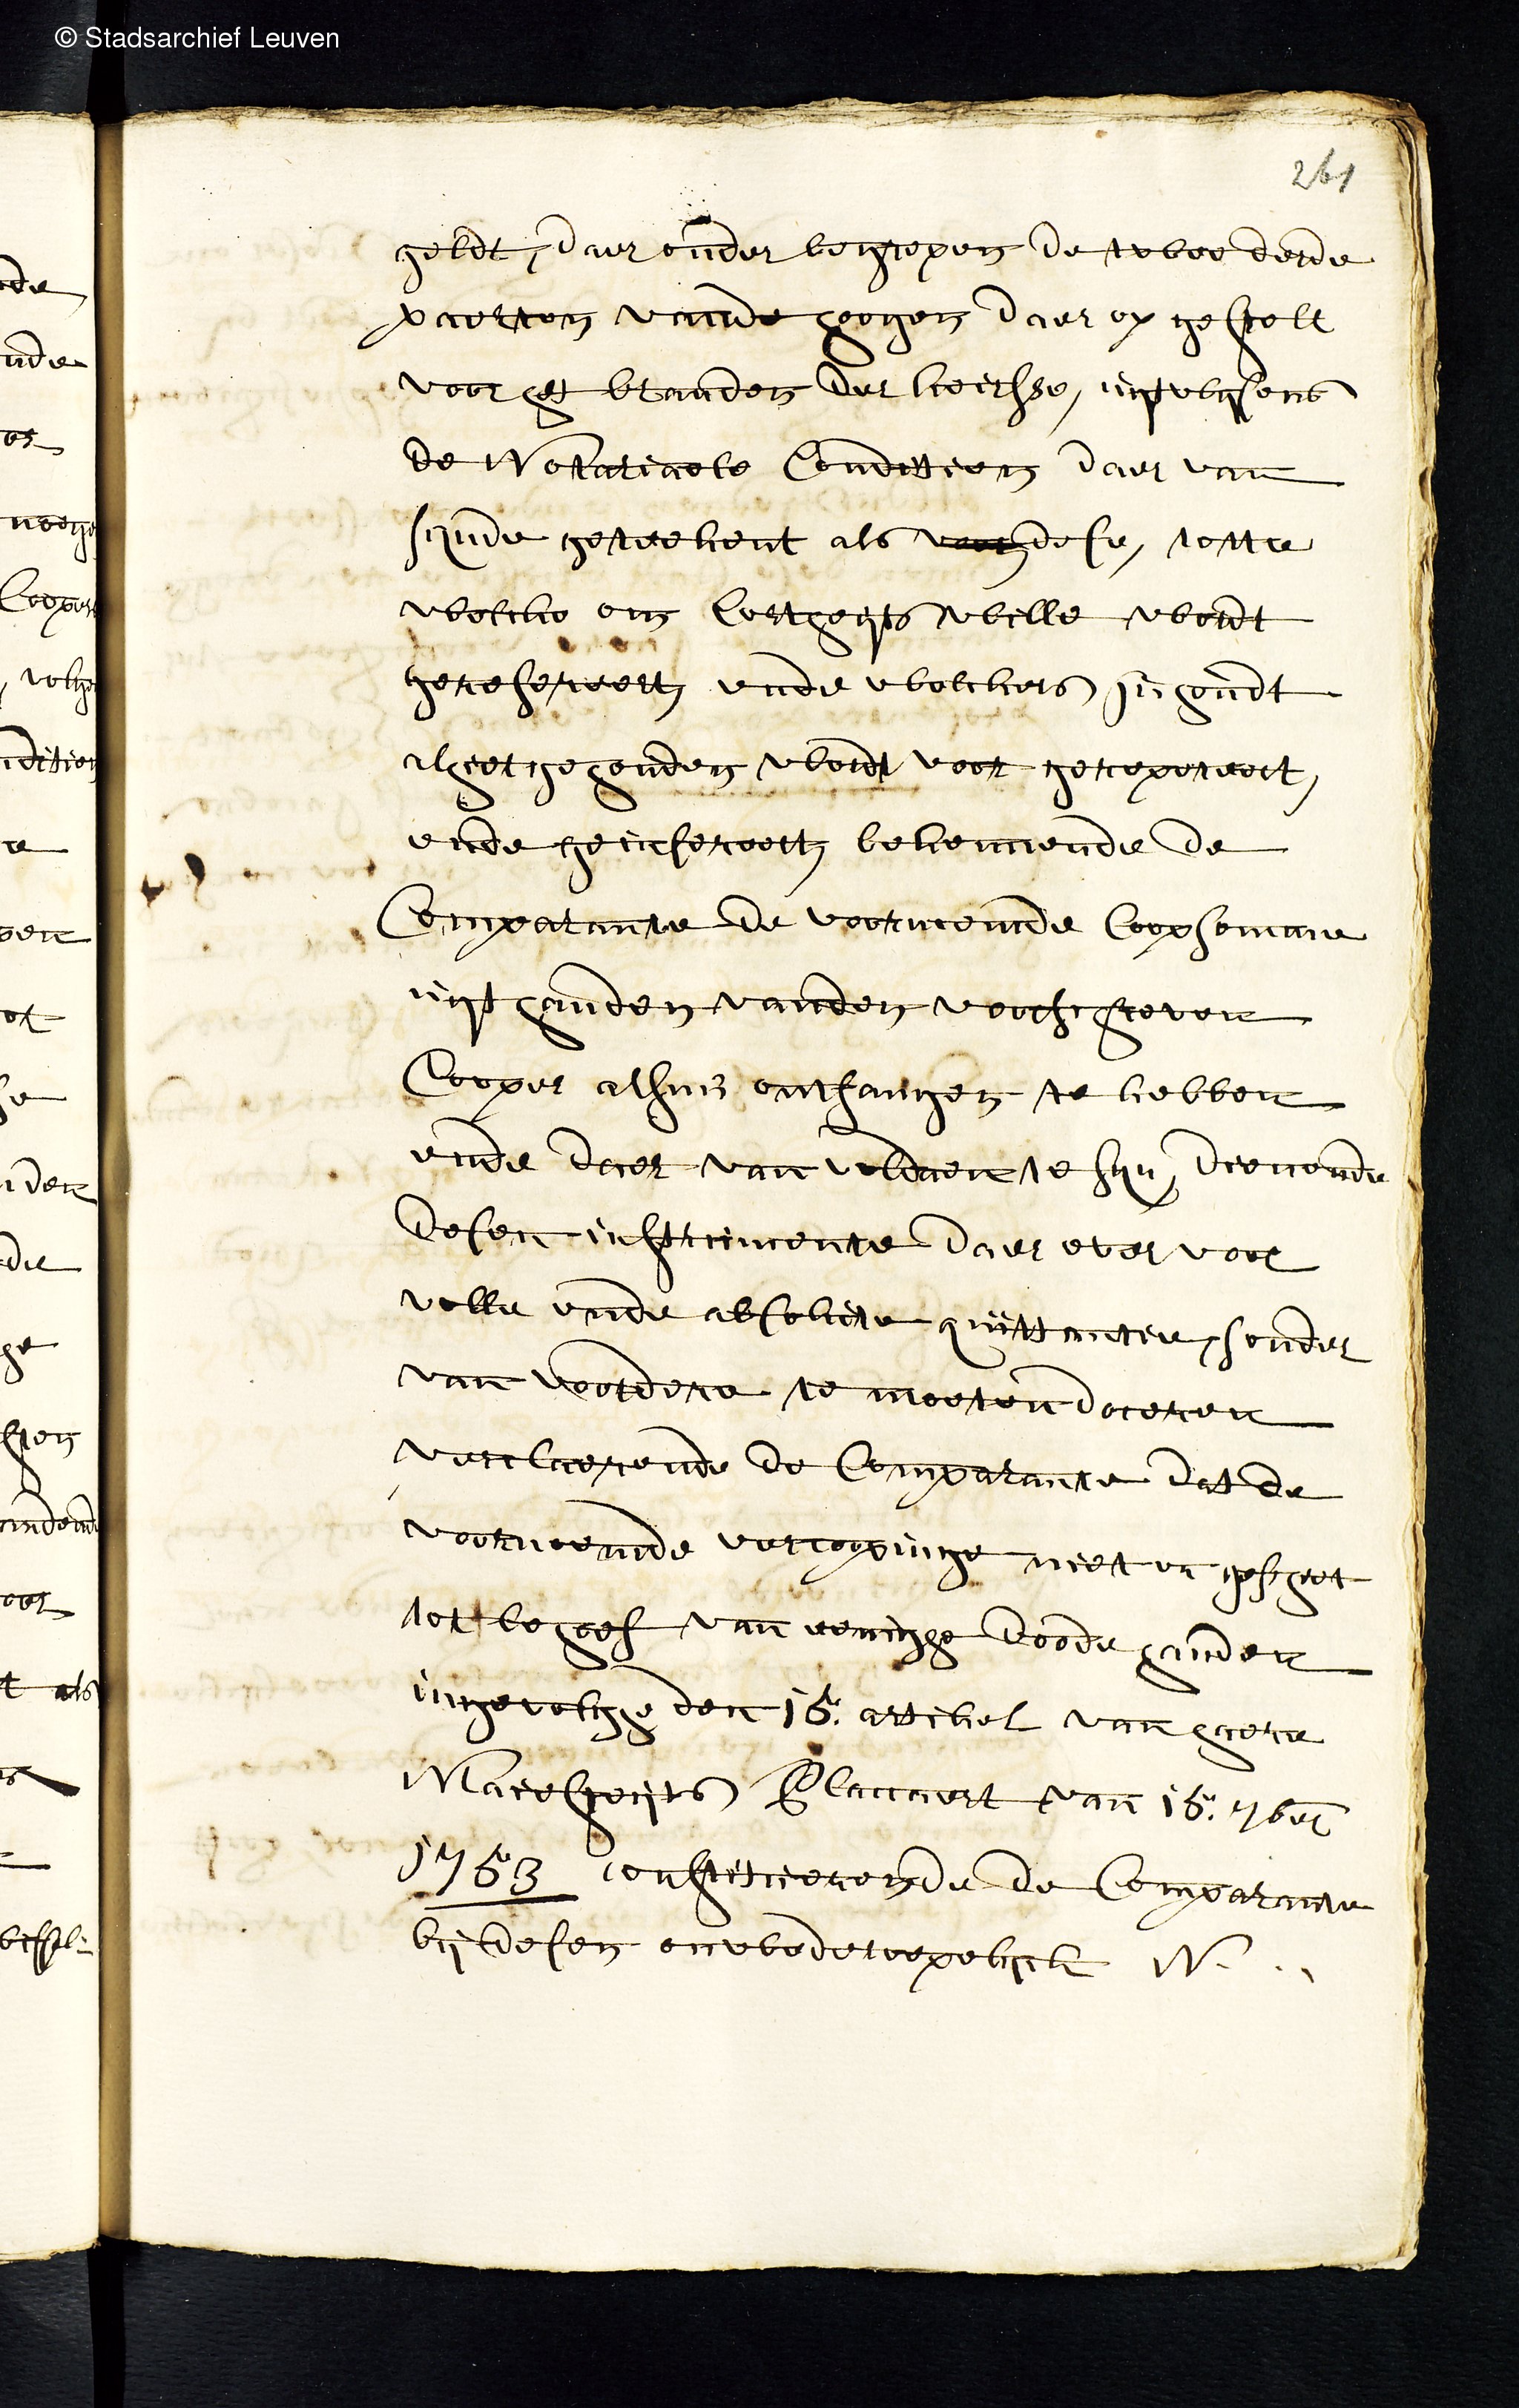 © Stadsarchief Leuven
261
geldt, daer onder begrepen de twee derde
paerten vande hoogen daer op gestelt
voor het branden der keirsse, uytwysens
de Notariaele Conditien daer van
synde geteekent als dese, totte
welcke om Cortheyts wille wordt
gerefereert ende welckers inhoudt
alhier gehouden wordt voor gerepeteert,
ende geinsereert bekennende de
Comparante de voornoemde Coopsomme
uyt handen vanden voorschreven
Cooper alhier ontfangen te hebben
ende daer van voldaen te syn, dienende
desen instrumente daer over voor
volle ende absolute quittantie, sonder
van voordere te moeten doceren
verclaerende de Comparante dat de
voornoemde vercoopinge niet en geschiet
tot behoef van eenighe doode handen
ingevolghe den 15. artikel van haere
Maiesteyts Placcaert van 15. 7ber
1753 constituerende de Comparante
by desen onwederroepelyck N. . .